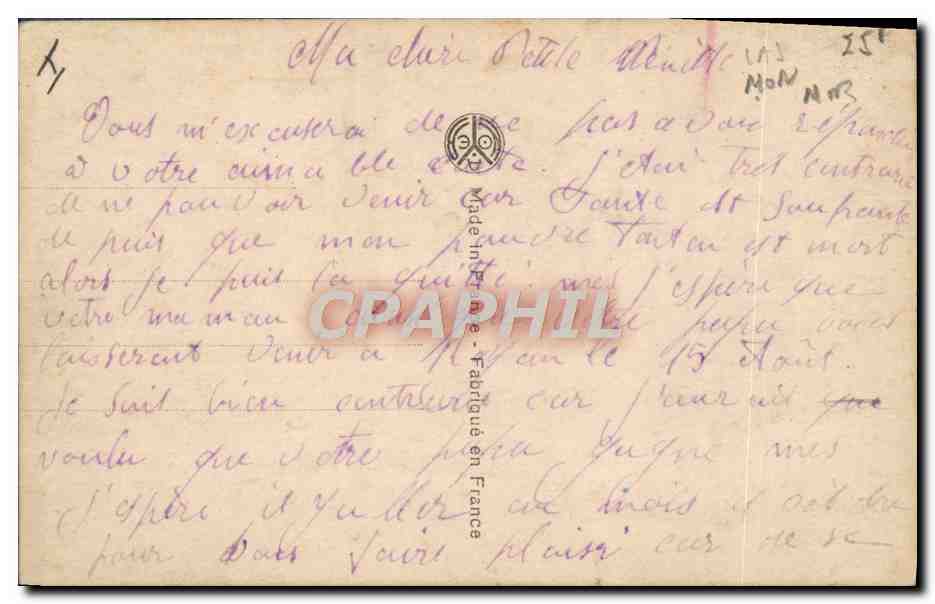 Ma chère Petite
IAJ
MON
MNR
25F
Vous m'excuserai de ne pas avoir répondu
à votre aimable carte. j'étai tres contrarié
de ne pouvoir venir car Tante est Soufrante
de puis que mon pauvre Tonton est mort
alors je puis la quitté. mes j'espère que
votre maman papa vous
laisserent venir a le 15 Août.
Je suis bien contrarié car j'aurais que
voulu que votre papa gagne mes
j'espère il y au mois
pour vous faire plaisir car de se
Made in France - Fabriqué en France
CPAPHIL